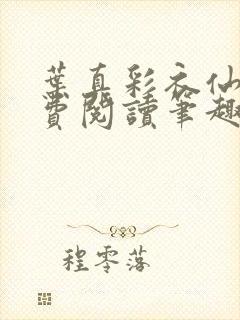 葉真彩衣仙
費閱讀筆趣
程零落